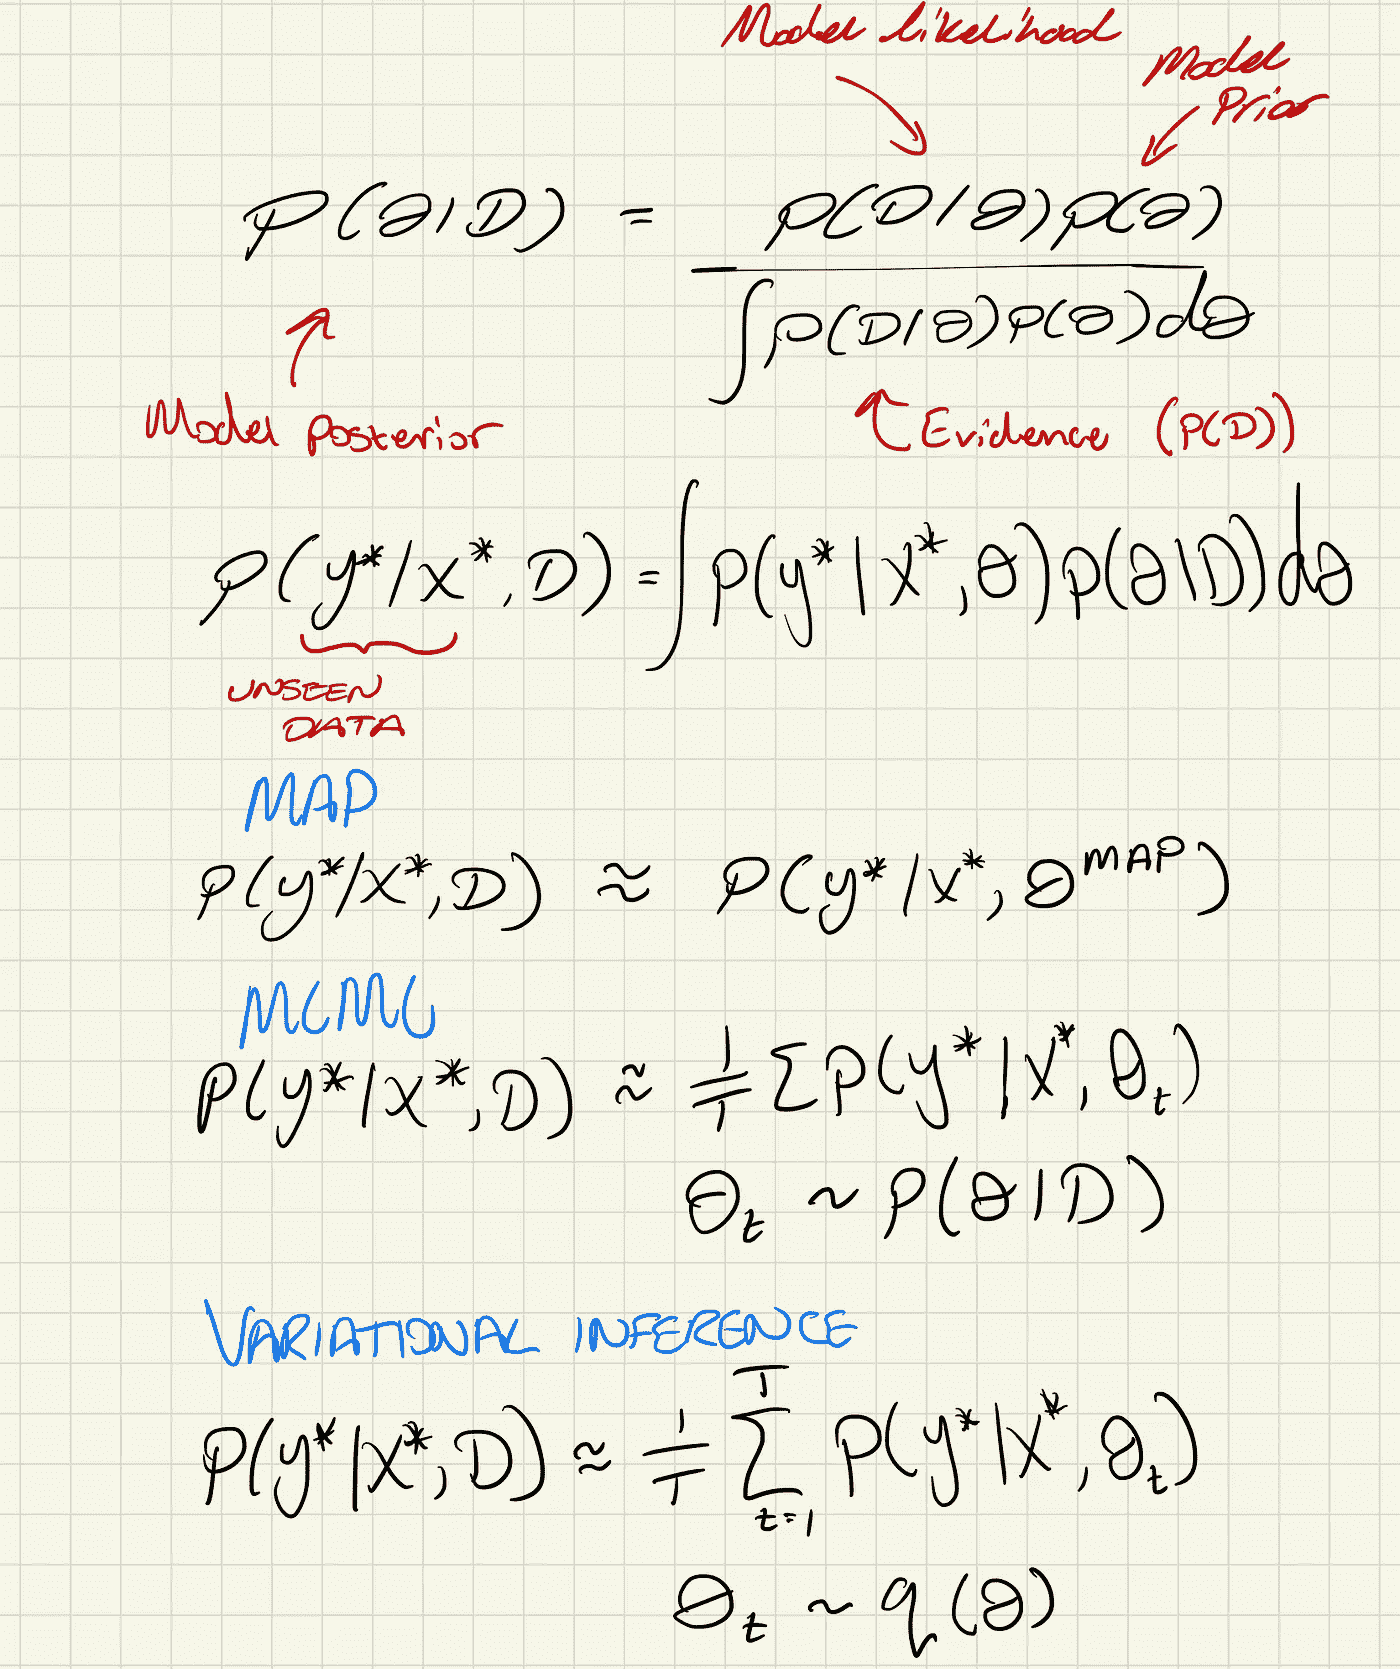 Model likelihood
Model
Prior
P(θ|D) = P(D/θ)P(θ)
∫P(D/θ)P(θ)dθ
Model Posterior
Evidence (P(D))
P(y*/x*, D) = ∫P(y*|x*, θ)P(θ|D)dθ
UNSEEN
DATA
MAP
P(y*/x*, D) ≈ P(y*/x*, θ^MAP)
MCMC
P(y*|x*, D) ≈ 1/T ΣP(y*|x*, θ_t)
θ_t ~ P(θ|D)
VARIATIONAL INFERENCE
P(y*|x*, D) ≈ 1/T Σ_{t=1}^{T} P(y*|x*, θ_t)
θ_t ~ q(θ)